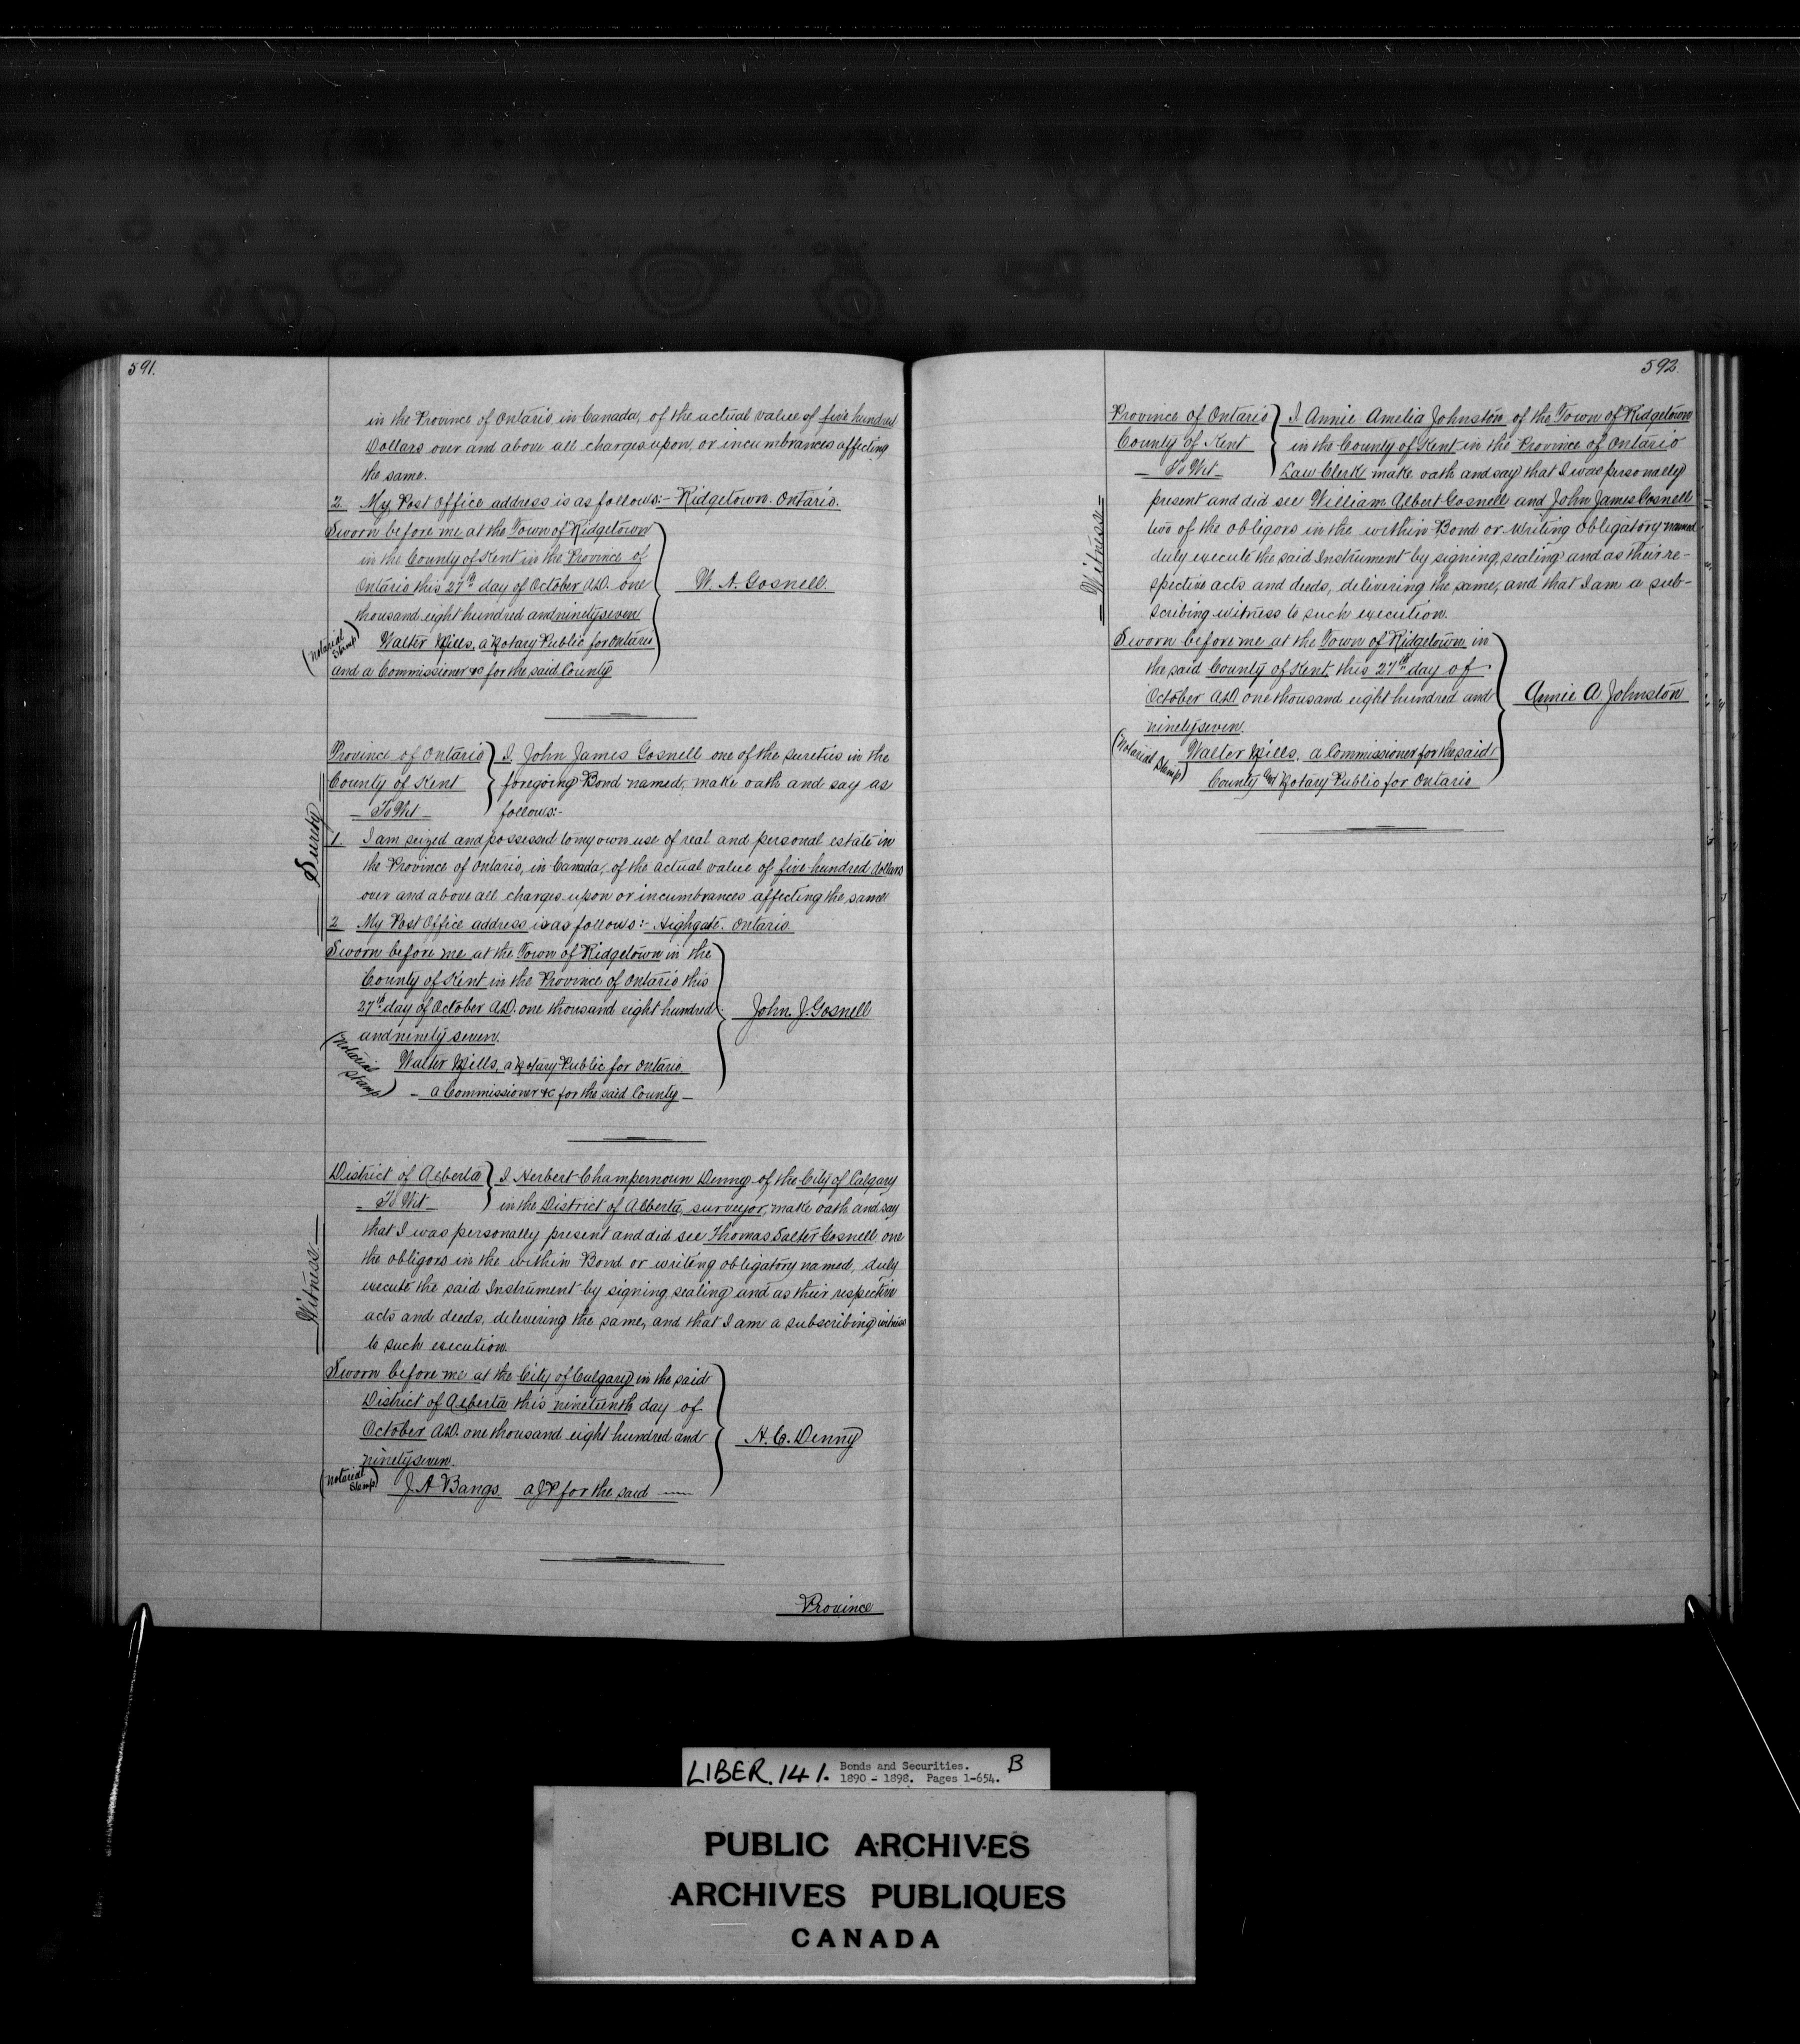 591.
in the Province of Ontario in Canada, of the actual value of five hundred
Dollars over and above all charges upon, or incumbrances affecting
the same.
2. My Post Office address is as follows:- Ridgetown. Ontario.
Sworn before me at the Town of Ridgetown
in the County of Kent in the Province of
Ontario this 27th day of October A.D. one
thousand eight hundred and ninetyseven
W. A. Gosnell.
(Notarial Stamp)
Walter Mills, a Notary Public for Ontario
and a Commissioner &c for the said County
Surety
Province of Ontario
County of Kent
To Wit
I, John James Gosnell one of the sureties in the
foregoing Bond named, make oath and say as
follows:-
1. I am seized and possessed to my own use of real and personal estate in
the Province of Ontario, in Canada, of the actual value of five hundred dollars
over and above all charges upon or incumbrances affecting the same
2 My Post Office address is as follows:- Highgate. Ontario.
Sworn before me at the Town of Ridgetown in the
County of Kent in the Province of Ontario this
27th day of October A.D. one thousand eight hundred
and ninety seven.
John. J. Gosnell
(Notarial Stamp)
Walter Mills, a Notary Public for Ontario.
a Commissioner &c for the said County
Witness
District of Alberta
To Wit
I Herbert Champernoun Denny of the City of Calgary
in the District of Alberta, surveyor, make oath and say
that I was personally present and did see Thomas Salter Gosnell one
the obligors in the within Bond or writing obligatory named, duly
execute the said Instrument by signing sealing and as their respective
acts and deeds, delivering the same, and that I am a subscribing witness
to such execution.
Sworn before me at the City of Calgary in the said
District of Alberta this nineteenth day of
October A.D. one thousand eight hundred and
ninetyseven.
H. C. Denny
(Notarial Stamp)
J. A Bangs. a JP for the said
Province
592.
Witness
Province of Ontario
County of Kent
To Wit
I Annie Amelia Johnston of the Town of Ridgetown
in the County of Kent in the Province of Ontario
Law Clerk make oath and say that I was personally
present and did see William Albert Gosnell and John James Gosnell
two of the obligors in the within Bond or writing Obligatory named
duly execute the said Instrument by signing, sealing and as their re-
spective acts and deeds, delivering the same, and that I am a sub-
scribing witness to such execution.
Sworn before me at the Town of Ridgetown in
the said County of Kent, this 27th day of
October A.D. one thousand eight hundred and
ninetyseven.
Annie A. Johnston
(Notarial Stamp)
Walter Mills, a Commissioner for the said
County and Notary Public for Ontario
LIBER. 141. Bonds and Securities. B
1890 - 1898. Pages 1-654.
PUBLIC ARCHIVES
ARCHIVES PUBLIQUES
CANADA